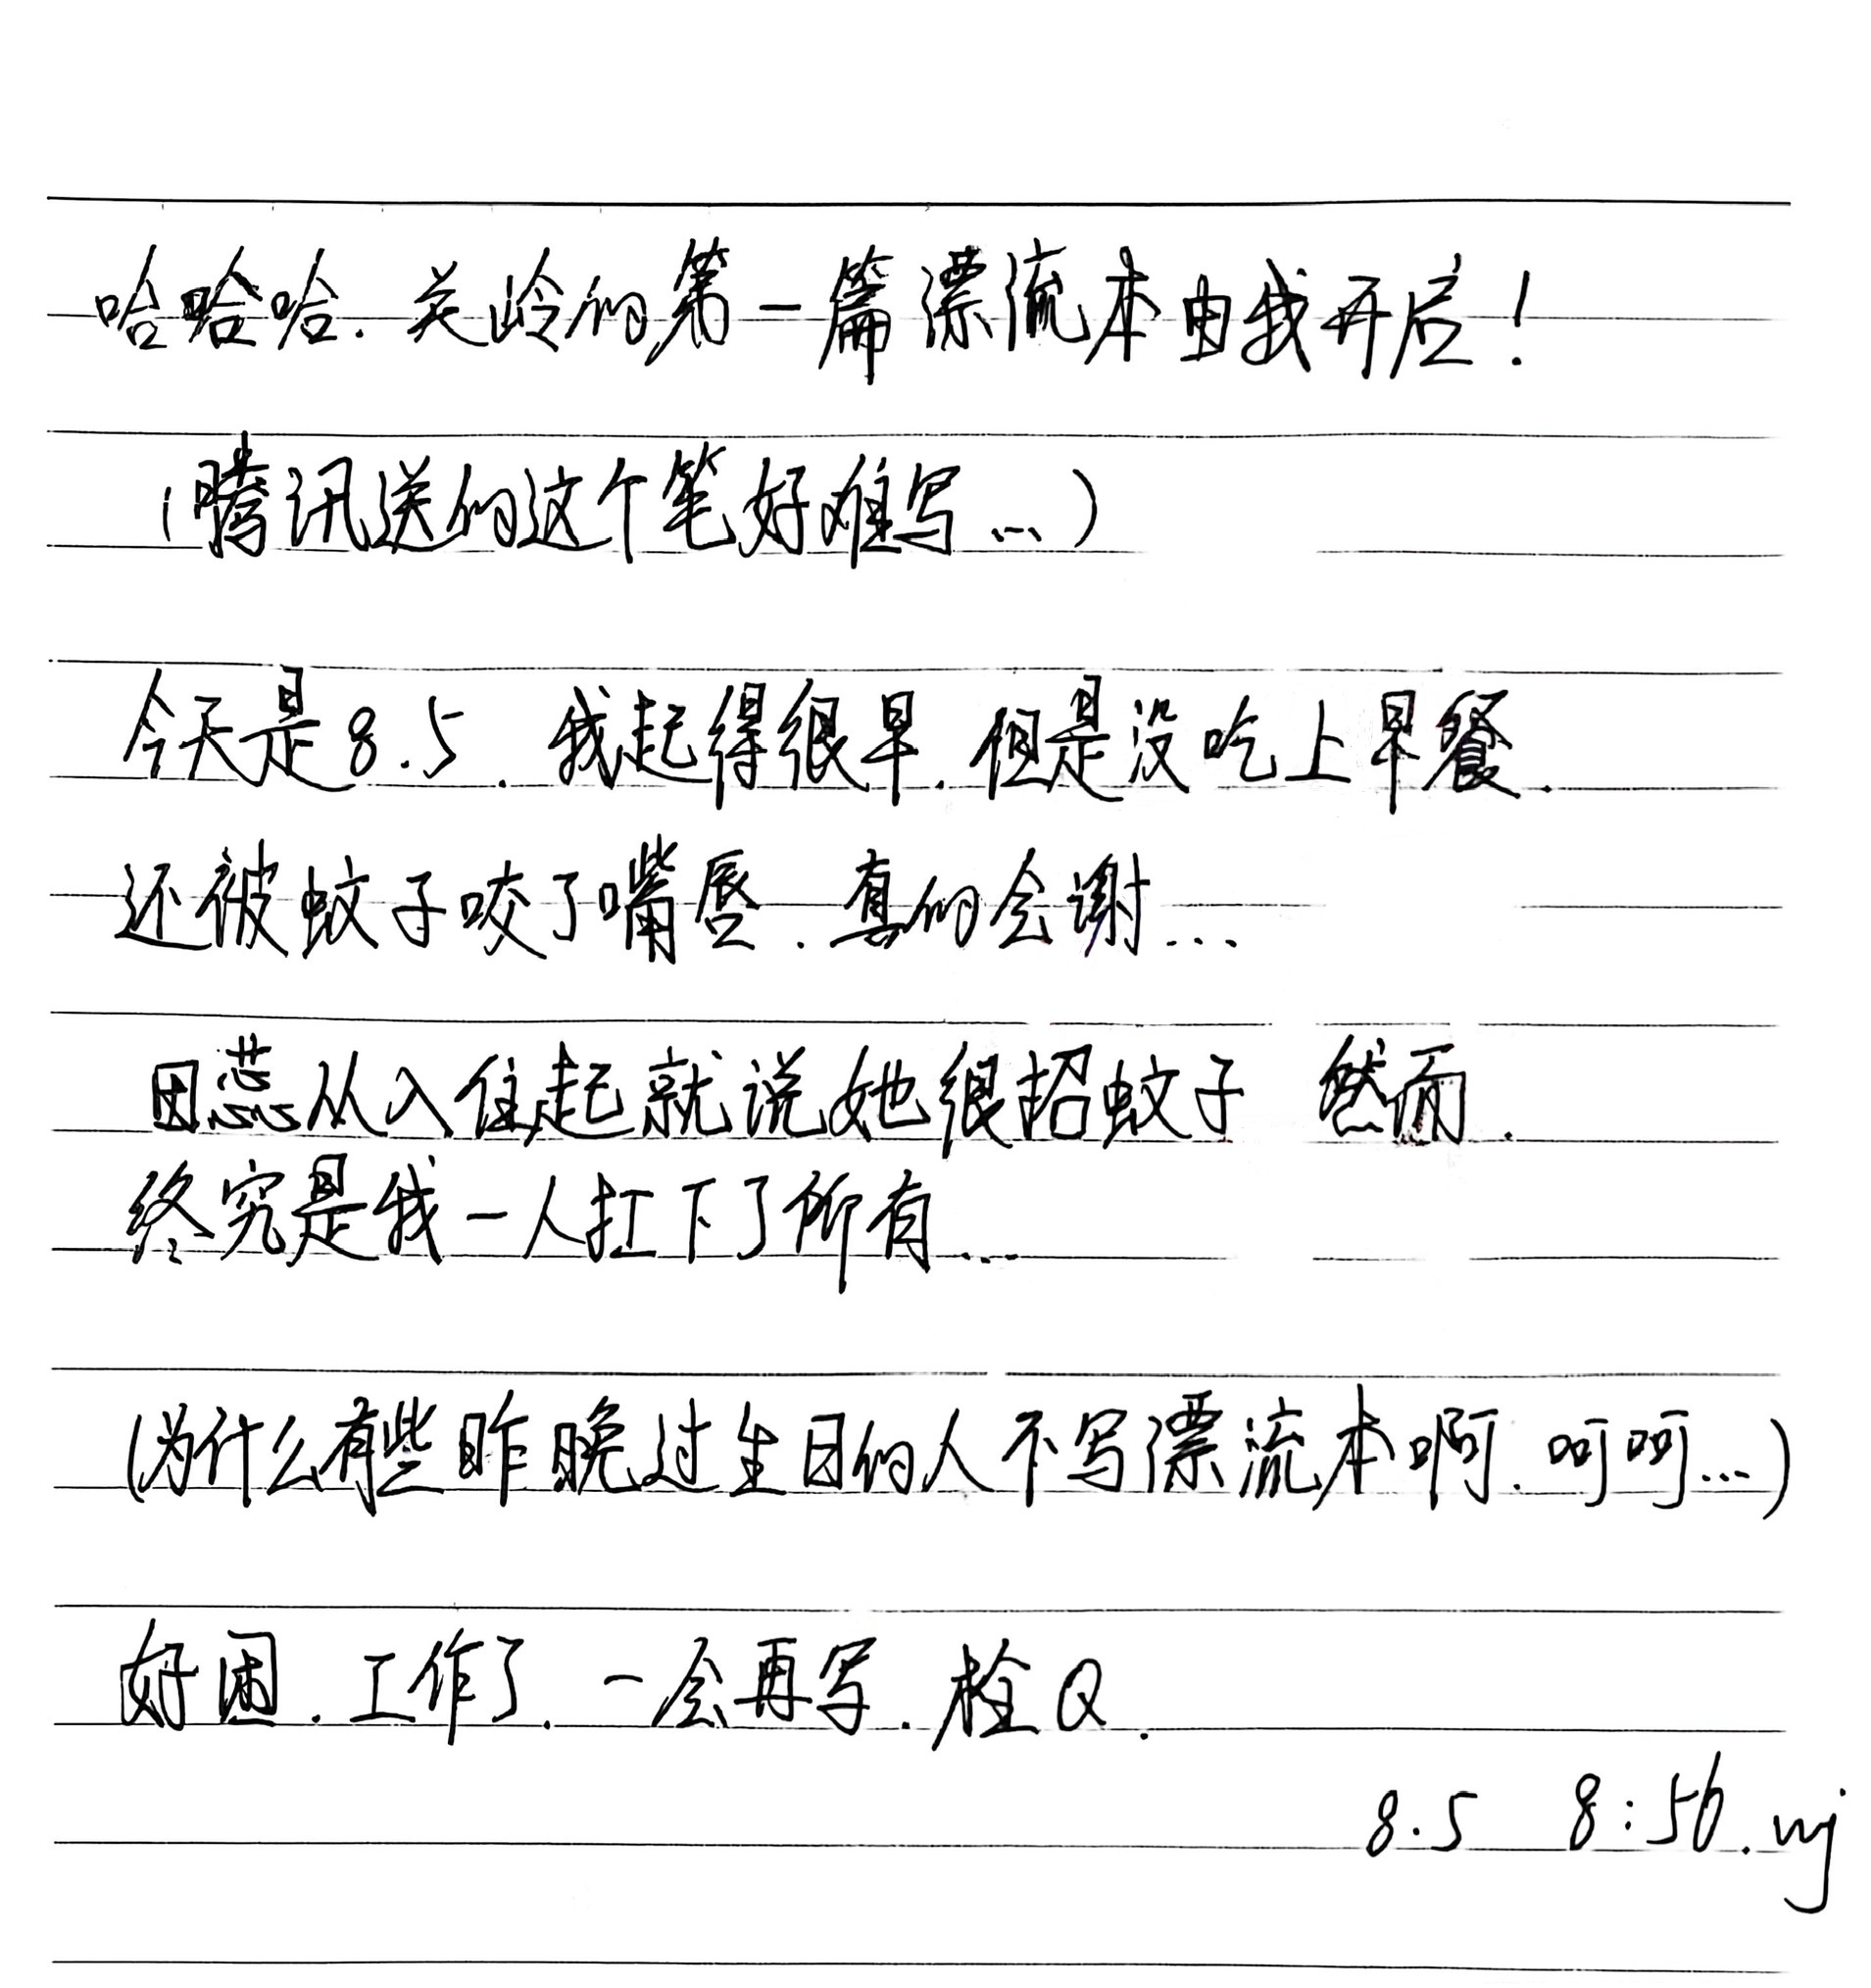 哈哈哈.关岭的第一篇漂流本由我开启!
(腾讯送的这个笔好难写...)
今天是8.5.我起得很早.但是没吃上早餐.
还被蚊子咬了嘴唇.真的会谢...
田蕊从入住起就说她很招蚊子 然而.
终究是我一人扛下了所有...
(为什么有些昨晚过生日的人不写漂流本啊.呵呵...)
好困.工作了.一会再写.栓Q.
8.5 8:56.wj